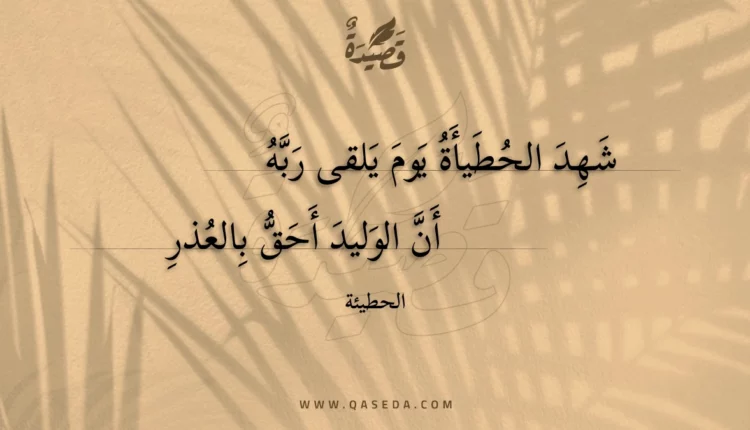 قَصِيدَةٌ
شَهِدَ الحُطَيأَةُ يَومَ يَلقى رَبَّهُ
أَنَّ الوَليدَ أَحَقُّ بِالعُذرِ
الحطيئة
WWW.QASEDA.COM